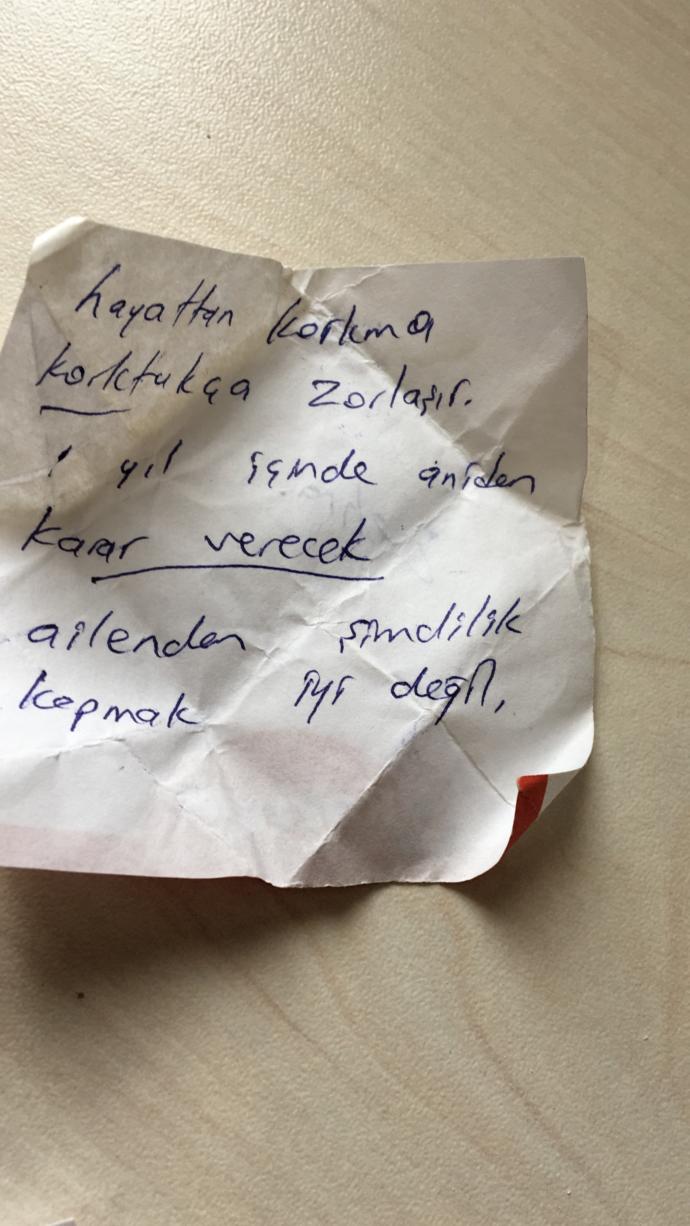 hayattan korkma
korktukça zorlaşır.
1 yıl içinde aniden
karar verecek
ailenden şimdilik
kopmak iyi değil,